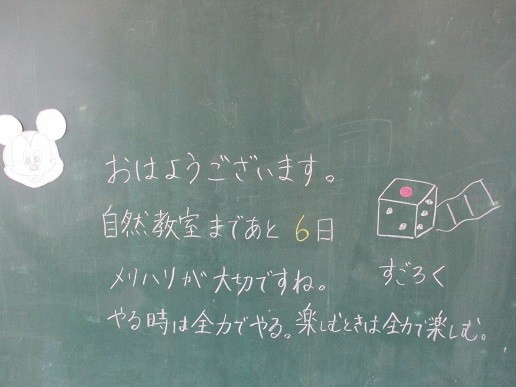 おはようございます。
自然教室まであと 6日
メリハリが大切ですね。
すごろく
やる時は全力でやる。楽しむときは全力で楽しむ。